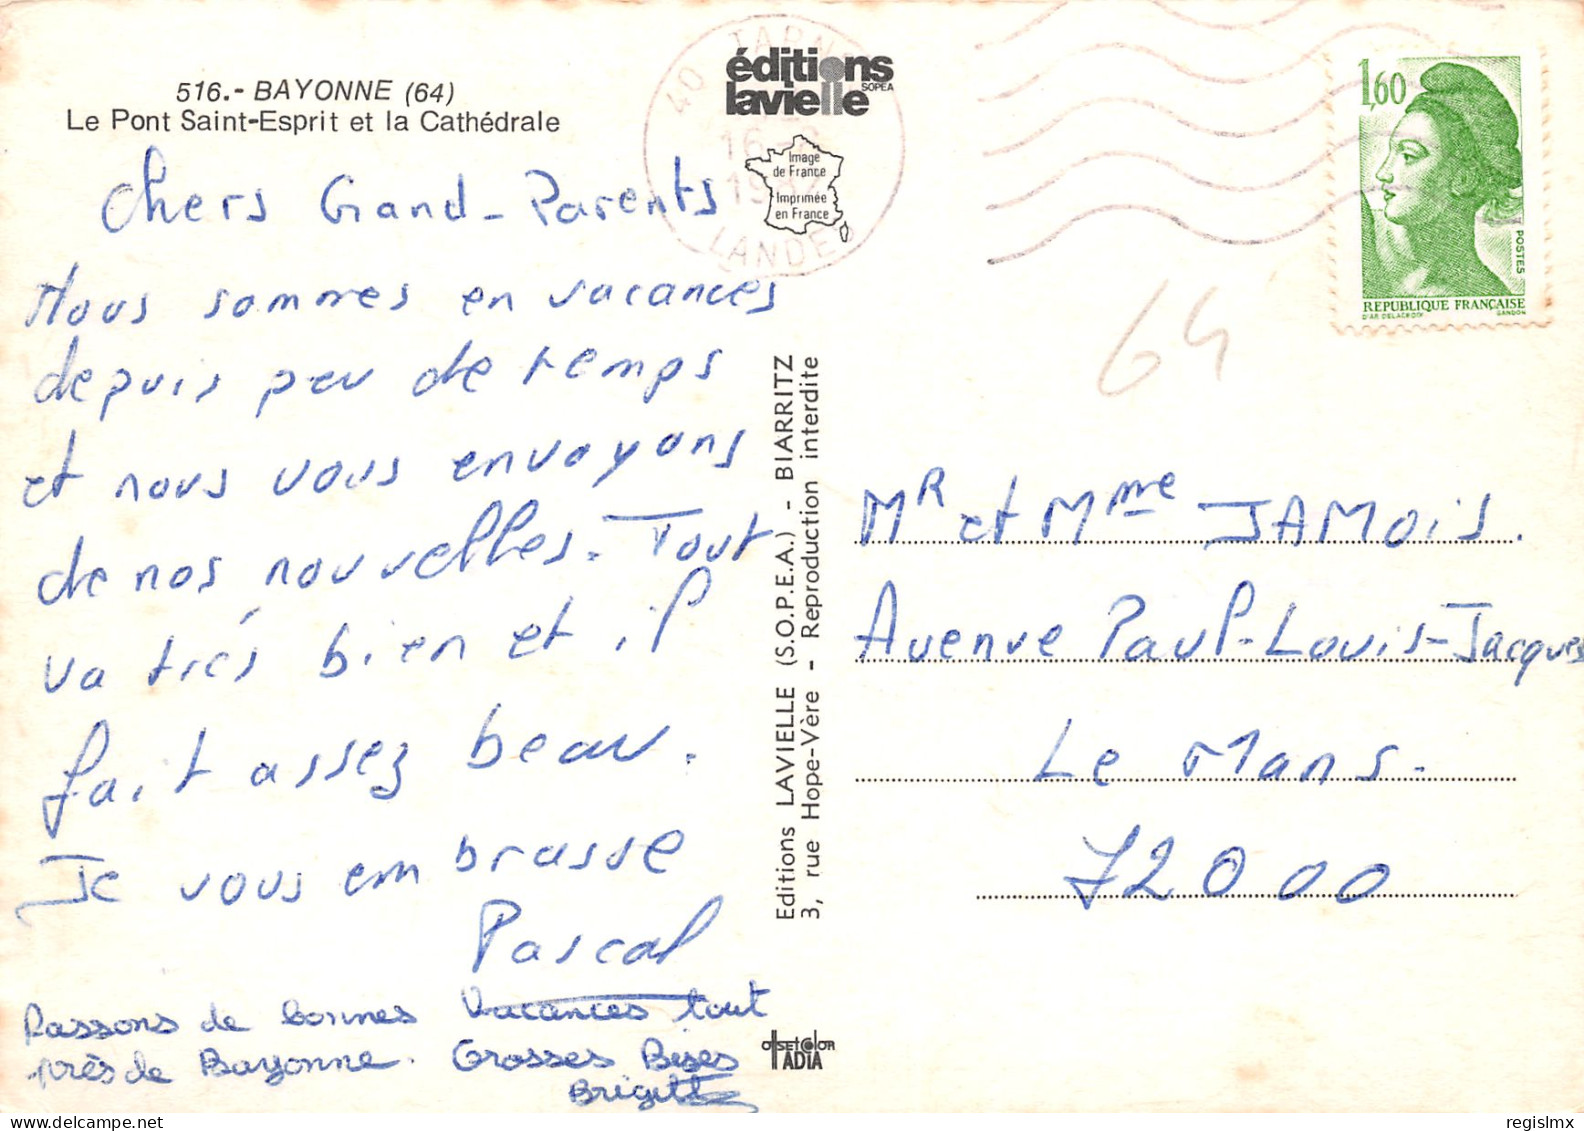 516.- BAYONNE (64)
Le Pont Saint-Esprit et la Cathédrale
Chers Grand-Parents
Nous sommes en vacances
depuis peu de temps
et nous vous envoyons
de nos nouvelles. Tout
va trés bien et il
fait assez beau.
Je vous embrasse
Pascal
Passons de bonnes Vacances tout
près de Bayonne. Grosses Bises
Brigitte
éditions
lavielle
SOPEA
Image
de France
Imprimée
en France
40 TARNOS
16-8
1982
LANDES
Editions LAVIELLE (S.O.P.E.A.) - BIARRITZ
3, rue Hope-Vère - Reproduction interdite
offsetcolor
IADIA
1,60
POSTES
REPUBLIQUE FRANÇAISE
D'AP. DELACROIX GANDON
64
Mr et Mme JAMOIS.
Avenue Paul-Louis-Jacques
Le Mans.
72000
regislmx